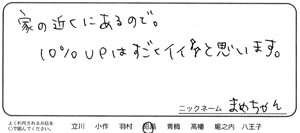 家の近くにあるので。
10%UPはすごくイイ々と思います。
ニックネーム まめちゃん
よく利用されるお店を
○で囲んでください。
立川 小作 羽村 福島 青梅 高幡 堀之内 八王子